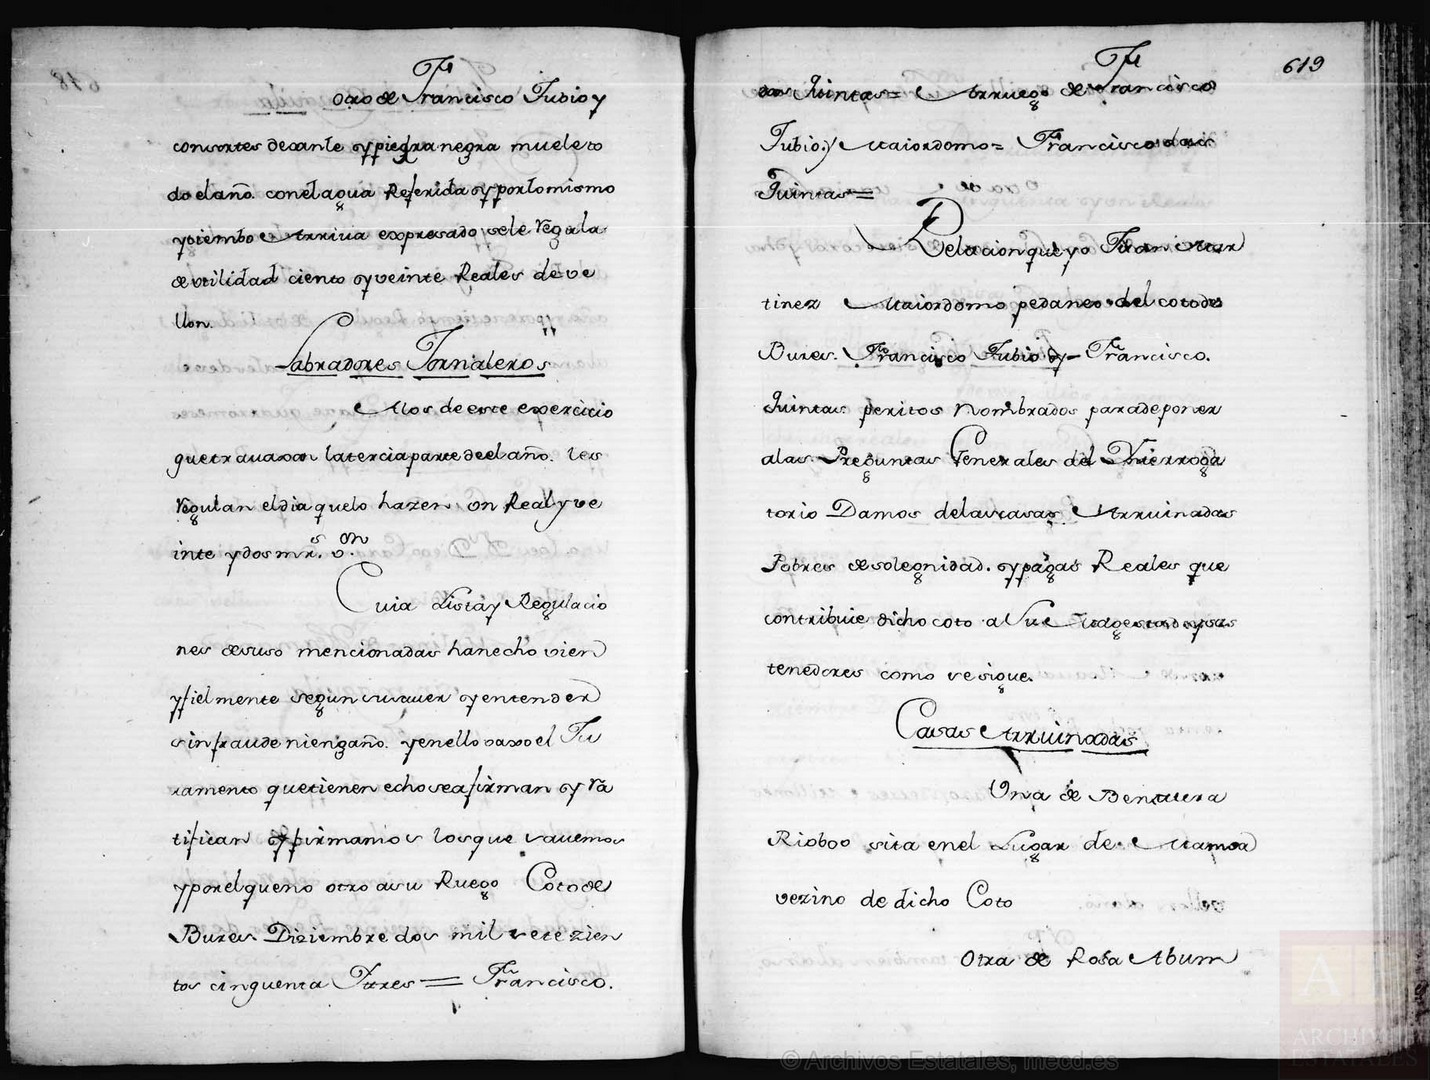 Otro de Francisco Tubio y
consortes decante y piedra negra muele to
do el año. con el agua Referida y por lo mismo
y tiembo Arriva expresado se le Regala
de utilidad ciento y veinte Reales de ve
llon.
Labradores Jornaleros
Alos de este exercicio
que travaxan la tercia parte de el año. les
Regulan el dia que lo hazen on Real y ve
inte y dos mrs. von.
Cuia lista y Regulacio
nes de suso mencionadas han echo vien
y fielmente segun su saver y entender
sin fraude ni engaño. y en ello vaxo el Ju
ramento que tienen echo se afirman y Ra
tifican y firmamos los que savemos
y por el que no otro a su Ruego Coto de
Bures Diziembre dos mil setezien
tos cinquenta Ytres = Francisco.
619
das Quintas = Arruego de Francisco
Tubio y Maiordomo = Francisco das
Quintas =
Relacion que yo Juan Mar
tinez Maiordomo pedaneo del coto de
Bures. Francisco Tubio y Francisco.
Quintas peritos Nombrados para deponer
alas Preguntas Generales del Ynterroga
torio Damos de las casas Arruinadas
Pobres de solegnidad. y pagas Reales que
contribuie dicho coto a Su Magestad y sus
tenedores como se sigue.
Casas Arruinadas
Una de Bentura
Rioboo sita en el Lugar de Mamoa
vezino de dicho Coto
Otra de Rosa Abuin
© Archivos Estatales, mecd.es
ARCHIVOS
ESTATALES